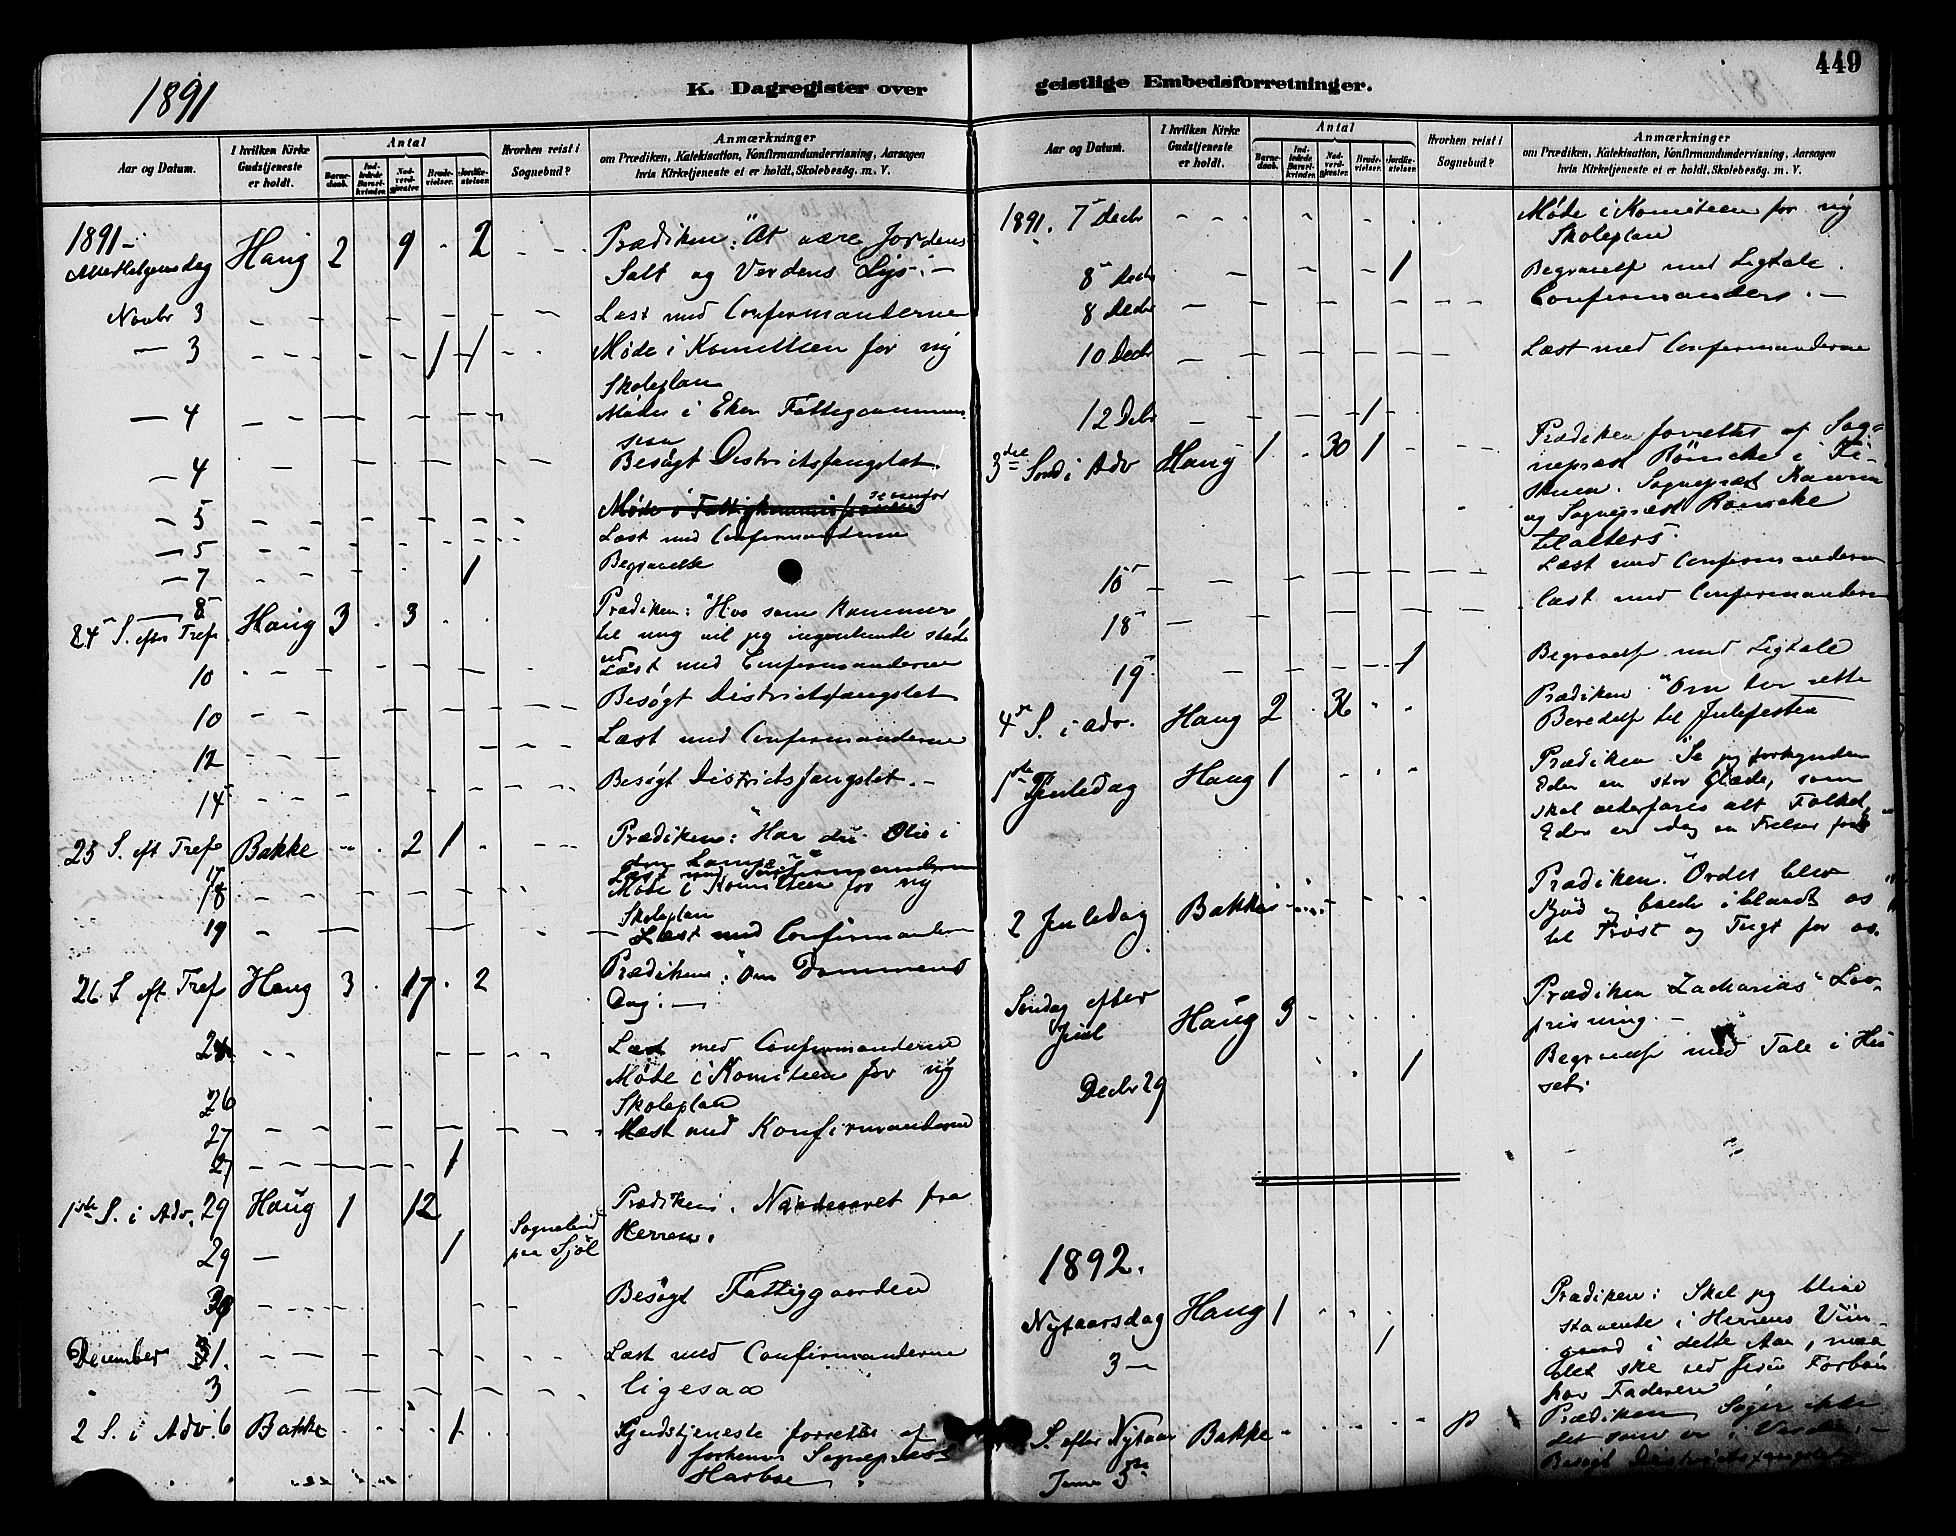 449
1891
K. Dagregister over
geistlige Embedsforretninger.
Aar og Datum.
I hvilken Kirke Gudstjeneste er holdt.
Antal
Barnedaab.
Indledede Barselkvinder.
Nadverdgjester.
Brudevielser.
Jordfæstelser.
Hvorhen reist i Sognebud?
Anmærkninger
om Prædiken, Katekisation, Konfirmandundervisning, Aarsagen
hvis Kirketjeneste ei er holdt, Skolebesøg. m. V.
1891
Allehelgensdag Haug 2 9 2 Prædiken: "At være Jordens
Salt og Verdens Lys
Novbr 3 Læst med Confirmanderne
3 1 1 Møde i Komitteen for ny
Skoleplan
4 Møder i Eker
4 Besøgt Districtsfængslet
5 Møde i Fattigkommissionen
5 Læst med Confirmanderne
7 1 Begravelse
8
24 S. efter Tref. Haug 3 3 Prædiken: "Hvo som kommer
til mig vil jeg ingenlunde støde
ud
10 Læst med Confirmanderne
10 Besøgt Districtsfængslet
12 Læst med Confirmanderne
14 Besøgt Districtsfængslet
25 S. eft Tref Bakke 2 1 Prædiken: "Har du Olie i
din Lampe"
17 Læst med Confirmanderne
18 Møde i Komitteen for ny
Skoleplan
19 Læst med Confirmandern
26 S eft Tref Haug 3 17 2 Prædiken: "Om Dommens
Dag
24 Læst med Confirmanderne
26 Møde i Komiteen for ny
Skoleplan
27 Læst med Konfirmanderne
27 1
1ste S. i Adv. 29 Haug 1 12 Prædiken: Naadeaaret fra
Herren.
29 1 Sognebud
paa Sjøl
30 Besøgt Fattiggaarden
December 1. Læst med Confirmanderne
3 ligesaa
2 S. i Adv 6 Bakke 1 Gudstjeneste forrettet af
forhenv Sognepræst
Harboe
Aar og Datum.
I hvilken Kirke Gudstjeneste er holdt.
Antal
Barnedaab.
Indledede Barselkvinder.
Nadverdgjester.
Brudevielser.
Jordfæstelser.
Hvorhen reist i Sognebud?
Anmærkninger
om Prædiken, Katekisation, Konfirmandundervisning, Aarsagen
hvis Kirketjeneste ei er holdt, Skolebesøg. m. V.
1891. 7 Decbr Møde i Komiteen for ny
Skoleplan
8 Decbr 1 Begravelse med Ligtale.
8 Decbr Confirmanders.
10 Decbr Læst med Confirmanderne
12 Debr 1
3die Sønd i Adv Haug 1 30 1 Prædiken forrettes af Sog-
nepræst Röm­cke i
Sognepræst
og Sognepræst Römcke
til alters.
15 Læst med Confirmandern
18 Læst med Confirmandern
19 1 Begravelse med Ligtale
4de S. i Adv. Haug 2 36 Prædiken "Om den rette
Beredelse til Julefesten
1ste Juledag Haug 1 Prædiken "Se jeg forkynder
Eder en stor Glæde, som
skal vederfares alt Folket,
Eder er idag en Frelser født"
2 Juledag Bakke Prædiken. "Ordet blev
Kjød og boede iblandt os"
til Trøst og Tugt for os.
Søndag efter
Jul Haug 3 Prædiken Zacharias' Lov-
prisning.
Decbr 29 1 Begravelse med Tale i Hu
set.
1892.
Nytaarsdag Haug 1 Prædiken: Skal jeg blive
staaende i Herrens Viin-
gaard i dette Aar, maa
det ske ved Jesu Forbøn
hos Faderen
3 1
S. efter Nytaar Bakke Prædiken, Søger ikke
det som er i Verden.
Besøgt Districtsfængslet